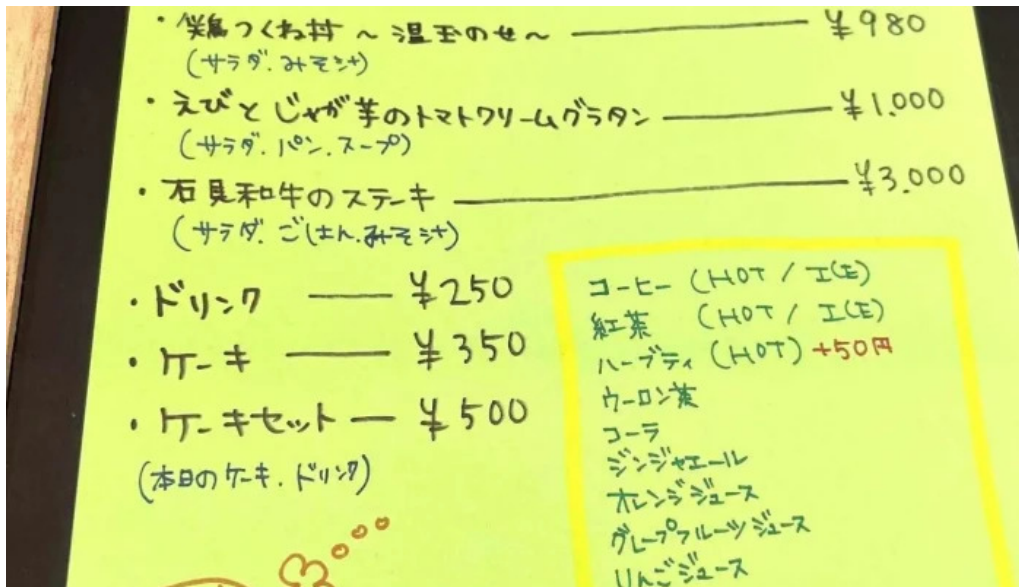 ・鶏つくね丼 ～温玉のせ～ ¥980
(サラダ.みそ汁)
・えびとじゃが芋のトマトクリームグラタン ¥1.000
(サラダ.パン.スープ)
・石見和牛のステーキ ¥3.000
(サラダ.ごはん.みそ汁)
・ドリンク ¥250
・ケーキ ¥350
・ケーキセット ¥500
(本日のケーキ.ドリンク)
コーヒー (HOT / ICE)
紅茶 (HOT / ICE)
ハーブティ (HOT) +50円
ウーロン茶
コーラ
ジンジャエール
オレンジジュース
グレープフルーツジュース
りんごジュース